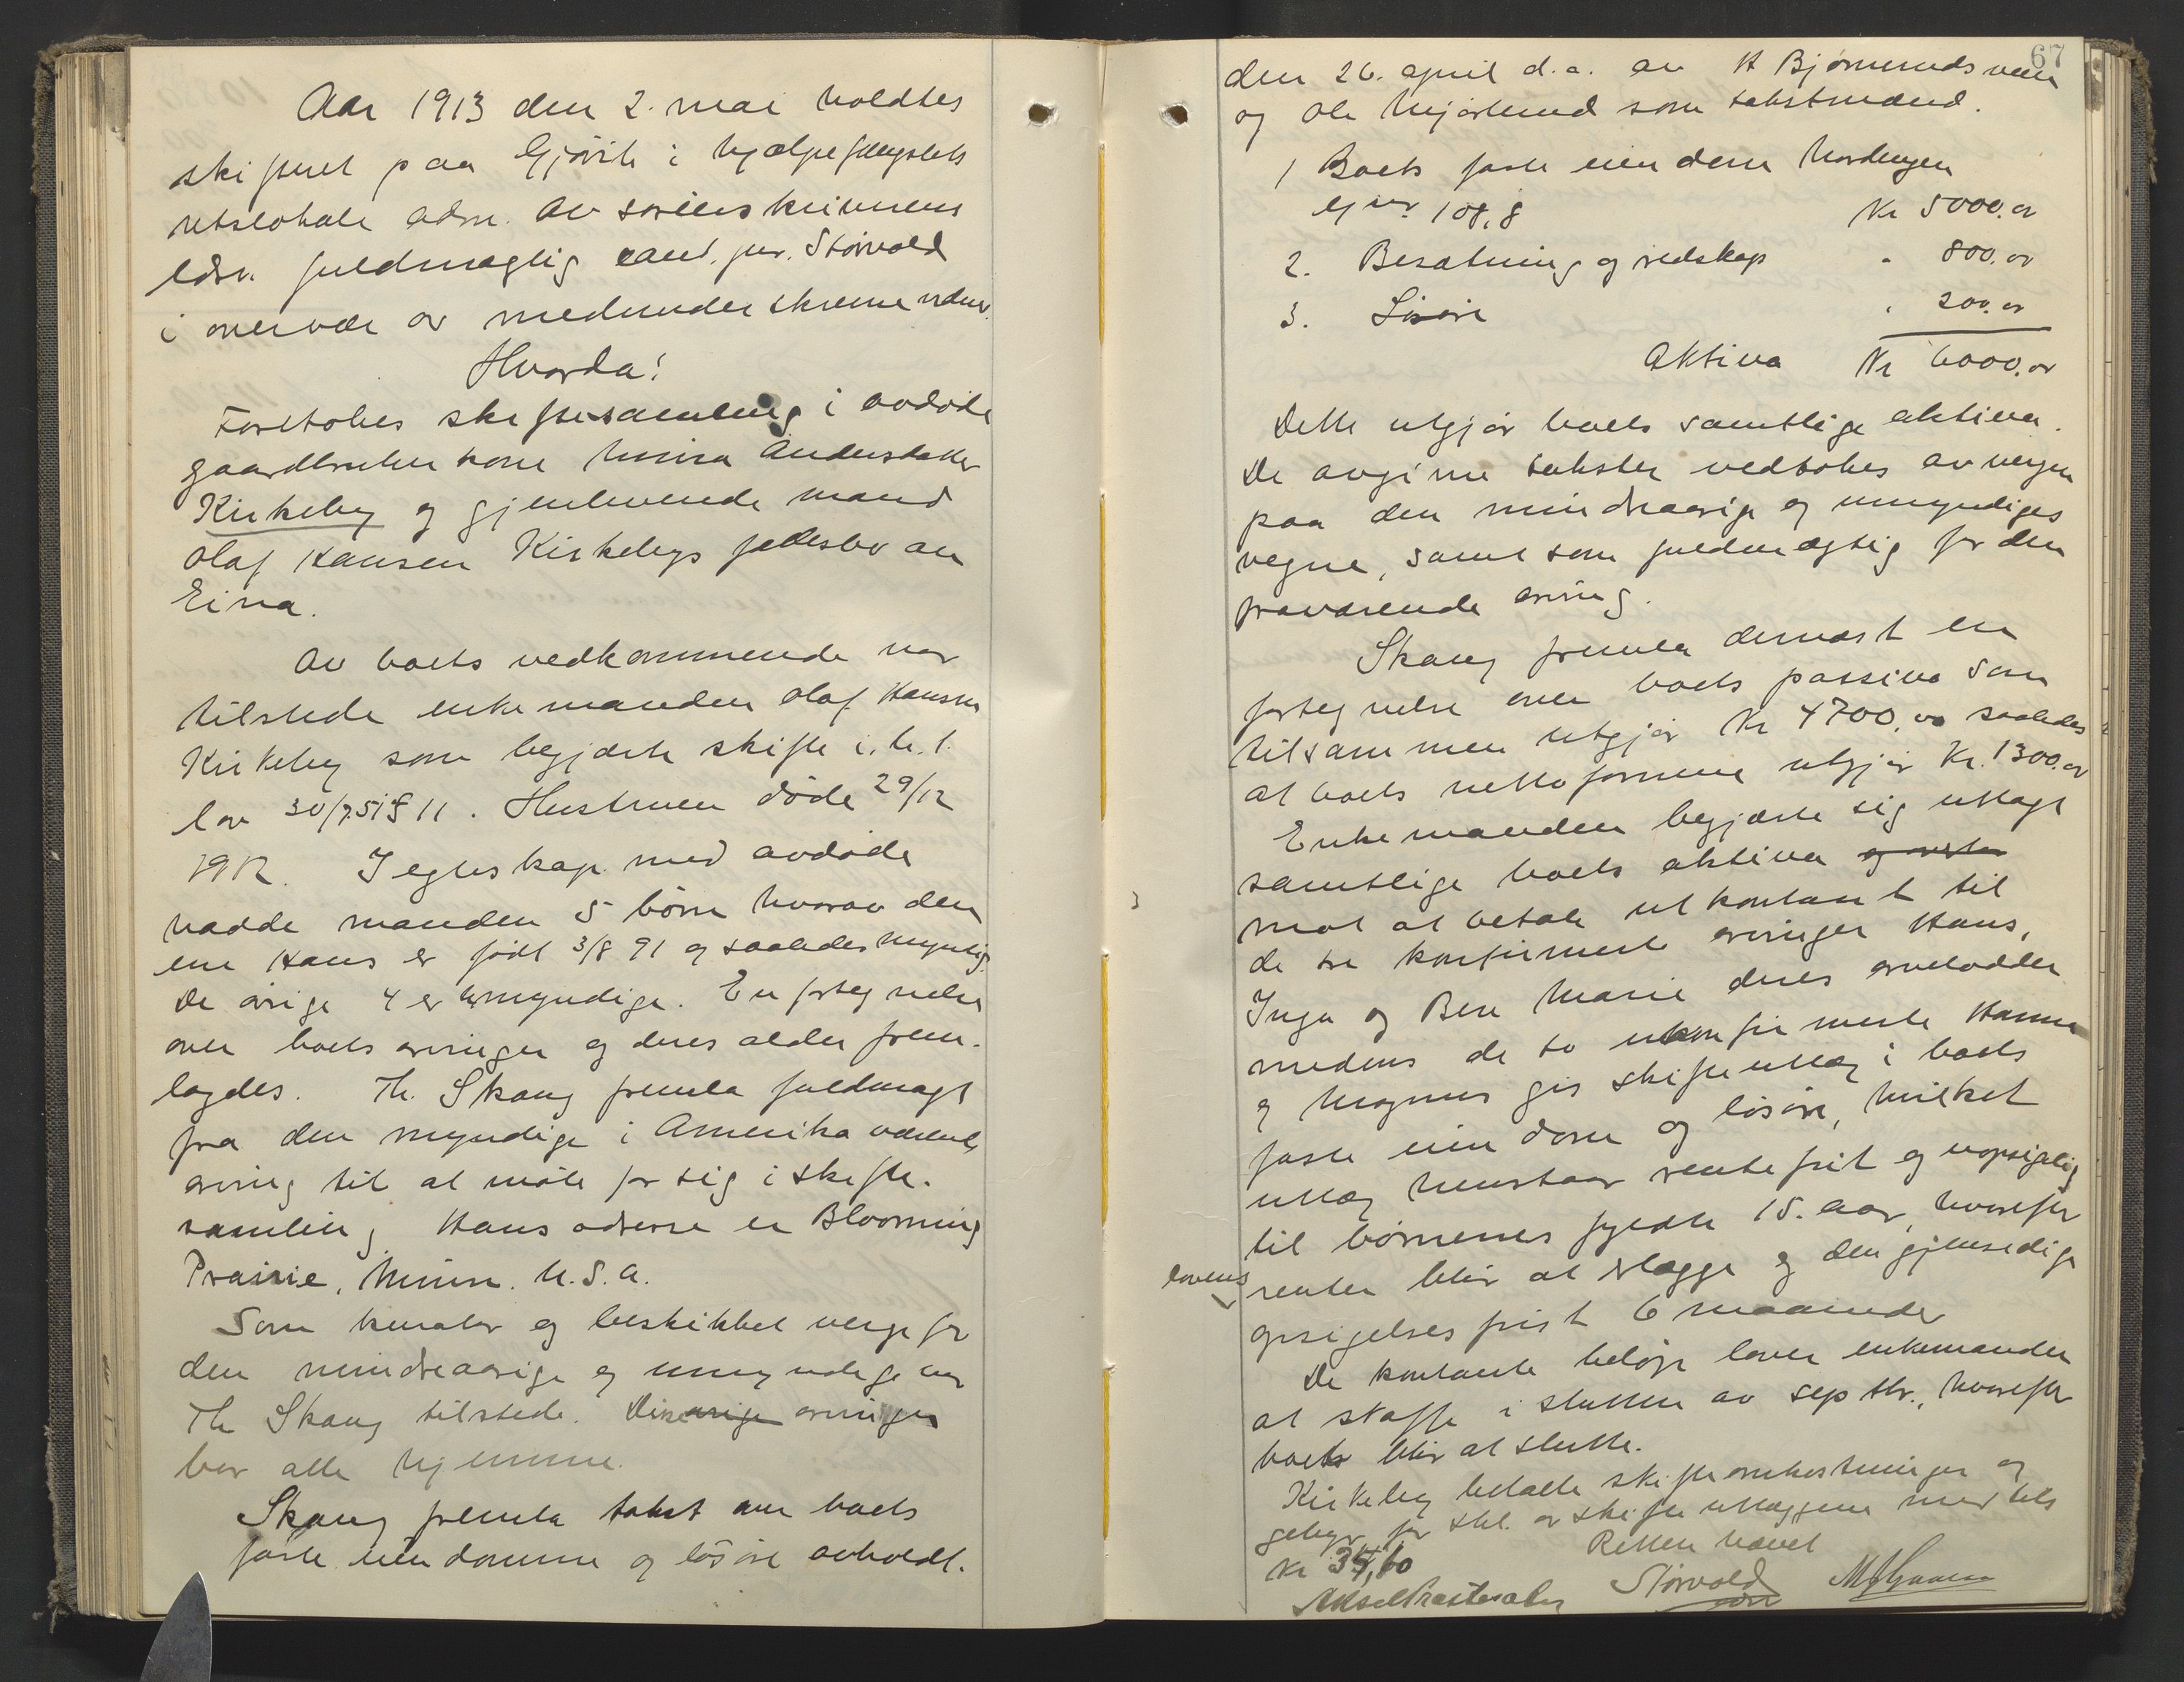 Aar 1913 den 2. mai holdtes
skifteret paa Gjøvik i hjælpefængslets
retslokale adm. av sorenskriverens
edsv. fuldmægtig cand. jur. Størvold
i overvær av medunderskrevne vidner.
Hvorda:
Foretokes skiftesamling i avdøde
gaardbrukerkone Mina Andersdatter
Kirkeby og gjenlevende mand
Olaf Hansen Kirkebys fællesbo av
Eina.
Av boets vedkommende var
tilstede enkemanden Olaf Hansen
Kirkeby som begjærte skifte i. h. t.
lov 30/7 51 § 11. Hustruen døde 29/12
1912. I egteskap med avdøde
hadde manden 5 børn hvorav den
ene Hans er født 3/8 91 og saaledes myndig.
De øvrige 4 er umyndige. En fortegnelse
over boets arvinger og deres alder frem-
lagdes. Th. Skaug fremla fuldmagt
fra den myndige i Amerika værende
arving til at møte for sig i skifte-
samling. Hans adresse er Blooming
Prairie, Minn. U.S.A.
Som kurator og beskikket verge for
den mindreaarige og umyndige var
Th Skaug tilstede. De øvrige arvinger
bor alle hjemme.
Skaug fremla takst over boets
faste eiendomme og løsøre avholdt
67
den 26. april d.a. av H Bjørnerudsveen
og Ole som takstmænd.
1 Boets faste eiendom Nordengen
G nr 108,8 Kr 5000.00
2. Besætning og redskap " 800.00
3. Løsøre " 200.00
Aktiva Kr 6000.00
Dette utgjør boets samtlige aktiva.
De avgivne takster vedtokes av vergen
paa den mindreaarige og umyndiges
vegne, samt som fuldmægtig for den
fraværende arving.
Skaug fremla dernæst en
fortegnelse over boets passiva som
tilsammen utgjør Kr 4700.00 saaledes
at boets nettoformue utgjør Kr. 1300.00
Enkemanden begjærte sig utlagt
samtlige boets aktiva
mot at betale ut kontant til
de tre konfirmerte arvinger Hans,
Inga og Bera Marie deres arvelodder
medens de to ukonfirmerte Hanna
og Magnus gis skifteutlæg i boets
faste eiendom og løsøre, hvilket
utlæg henstaar rentefrit og uopsigelig
til børnenes fyldte 15. aar, hvorefter
lovens renter blir at erlægge og den gjensidige
opsigelsesfrist 6 maaneder
De kontante beløp lover enkemanden
at skaffe i slutten av septbr., hvorefter
boet blir at slutte.
Kirkeby betalte skifteomkostninger og
gebyr for tbl. av skifteutlæggene med tils
kr 34,60 Retten hævet
Størvold